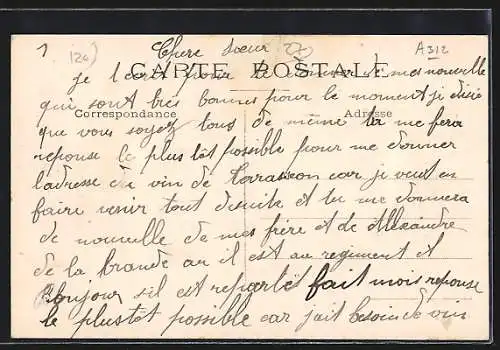 1 (20) Chere sœur A312
CARTE POSTALE
je t'ecrit pour te donner de mes nouvelle
qui sont très bonnes pour le moment je désire
Correspondance Adresse
que vous soyez tous de même tu me fera
reponse le plus tôt possible pour me donner
l'adresse du vin de Tarrascon car je veut en
faire venir tout de suite et tu me donnera
de nouvelle de mes frère et de Alexandre
de la Brande au il est au regiment et
Bonjour s'il est repartit fait mois reponse
le plustôt possible car jait besoin de vin